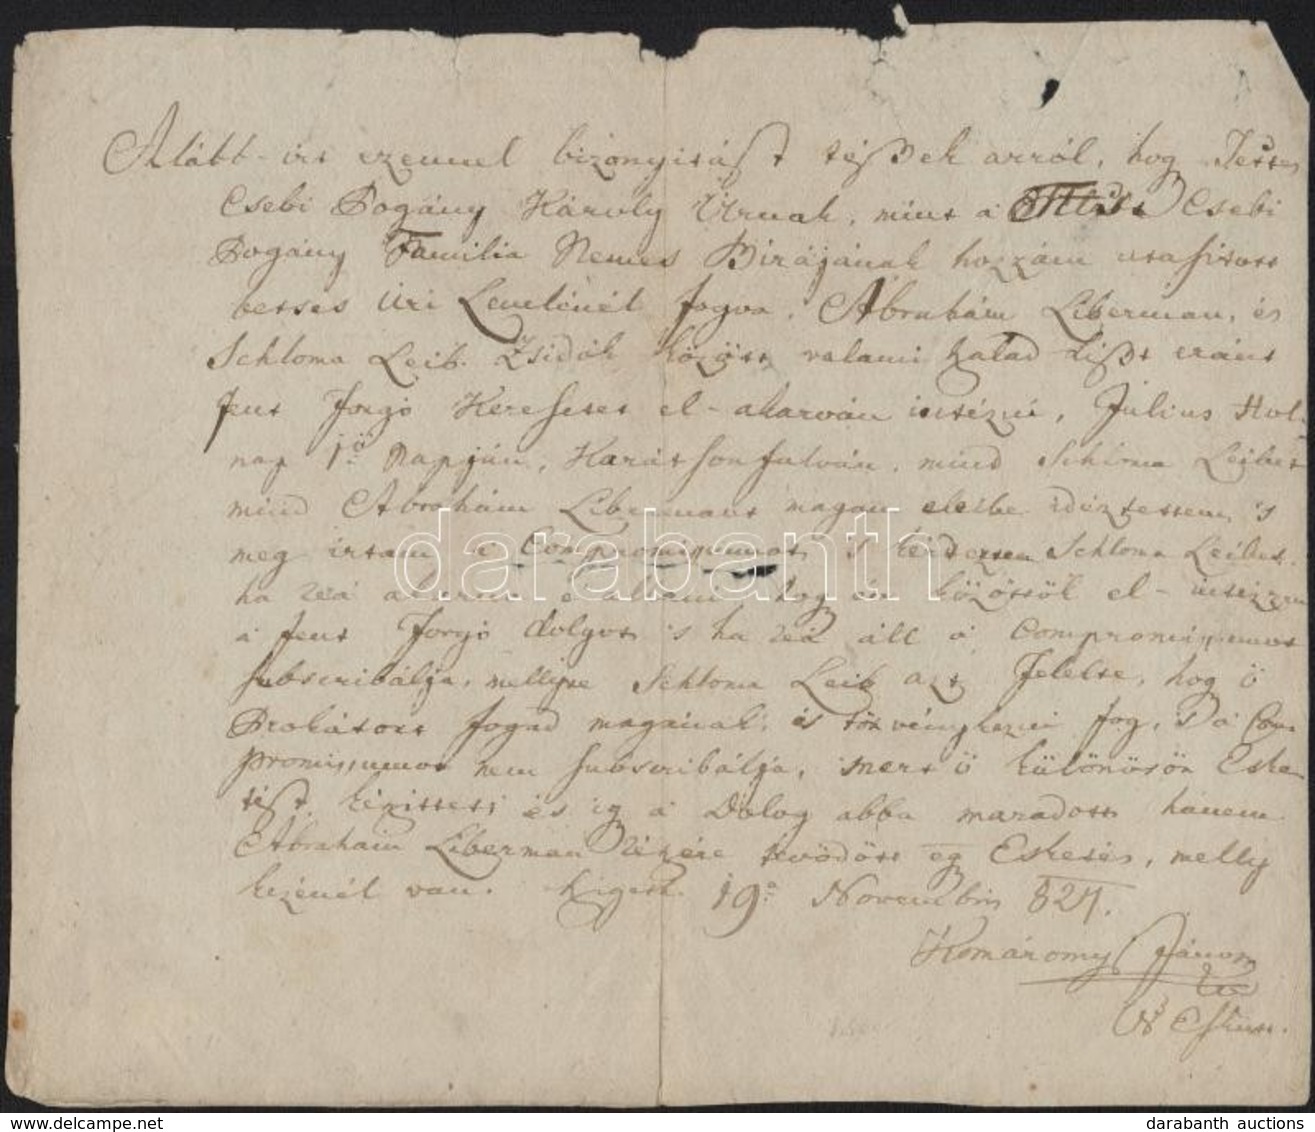 Alább irt ezennel bizonyitást tészek arról, hog Tettes
Csebi Pogány Károly Úrnak, mint a Csebi
Pogány Familia Nemes Birájának hozzám utasitott
betses Úri Levelénél fogva, Ábrahám Liberman, és
Schloma Leib Zsidók között valami eránt
fent forgó Keresetet el-akarván intézni, Július Hol-
nap 1ő Napján, Karátsonfalván, mind Schloma Leibot
mind Abrahám Libermant magam eleibe idéztettem 's
meg irtam a Compromissumot, 's kérdeztem Schloma Leibot,
ha reá akarja é állani, hog én közöttök el-intézzem
a fent forgó dolgot 's ha reá áll a Compromissumot
subscribálja, mellyre Schloma Leib azt Felelte, hog ő
Prokátort fogad magának, és törvénykezni fog, 's a Com-
promissumot nem subscribálja, mert ő különösön Eske-
tést késittett és ig a Dolog abba maradott hanem
Ábrahám Liberman részére tevődött eg Esketés, melly
kezénél van. 19ő Novembris 824.
Komáromy János
N Esküt.
darabanth
darabanth auctions